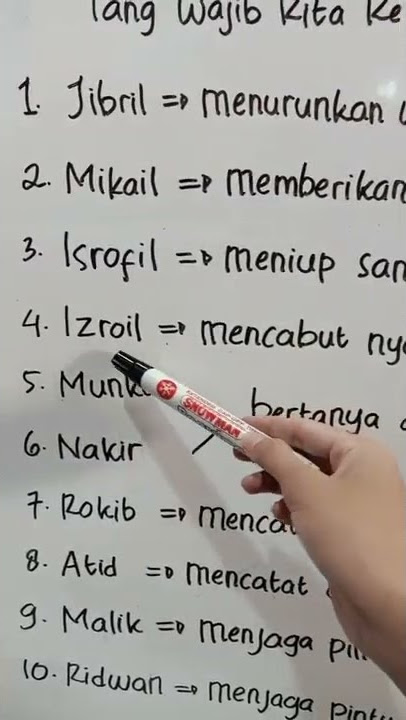 Yang Wajib Kita Ke
1. Jibril => menurunkan
2. Mikail => memberikan
3. Isrofil => meniup san
4. Izroil => mencabut ny
5. Munk
bertanya
6. Nakir
7. Rokib => menca
8. Atid => mencatat
9. Malik => menjaga pin
10. Ridwan => menjaga pintu
SNOWMAN